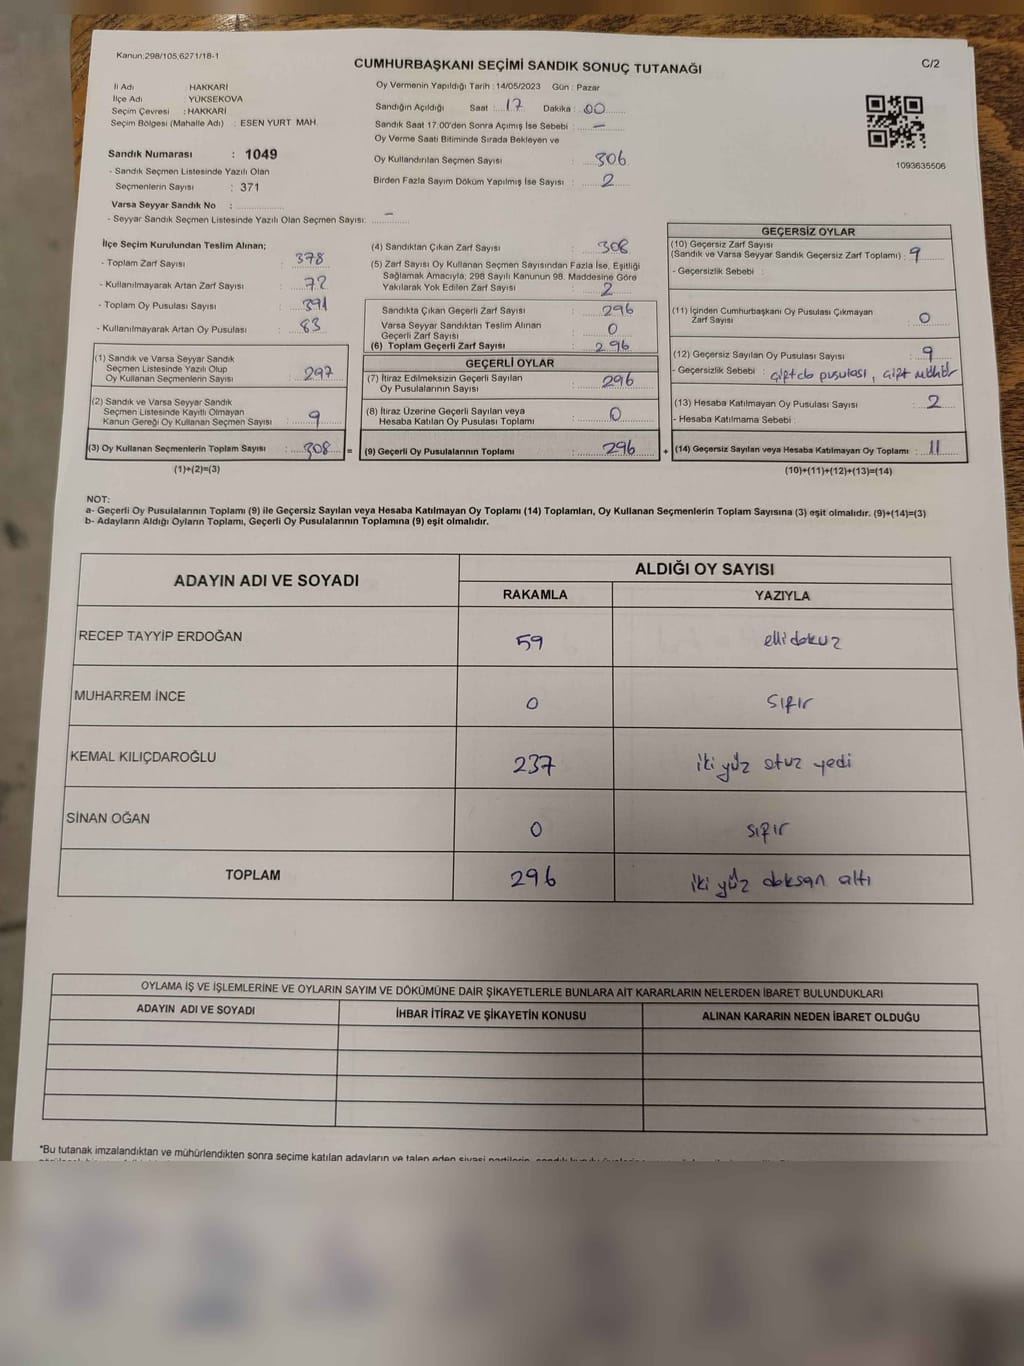 Kanun:298/105,6271/18-1
CUMHURBAŞKANI SEÇİMİ SANDIK SONUÇ TUTANAĞI
C/2
İl Adı HAKKARİ
İlçe Adı YÜKSEKOVA
Seçim Çevresi : HAKKARİ
Seçim Bölgesi (Mahalle Adı) : ESEN YURT MAH.
Sandık Numarası : 1049
- Sandık Seçmen Listesinde Yazılı Olan
Seçmenlerin Sayısı : 371
Varsa Seyyar Sandık No :
- Seyyar Sandık Seçmen Listesinde Yazılı Olan Seçmen Sayısı: –
Oy Vermenin Yapıldığı Tarih : 14/05/2023 Gün : Pazar
Sandığın Açıldığı Saat : 17 Dakika : 00
Sandık Saat 17:00'den Sonra Açımış İse Sebebi : –
Oy Verme Saati Bitiminde Sırada Bekleyen ve
Oy Kullandırılan Seçmen Sayısı : 306
Birden Fazla Sayım Döküm Yapılmış İse Sayısı : 2
1093635506
İlçe Seçim Kurulundan Teslim Alınan;
- Toplam Zarf Sayısı : 378
- Kullanılmayarak Artan Zarf Sayısı : 72
- Toplam Oy Pusulası Sayısı : 391
- Kullanılmayarak Artan Oy Pusulası : 83
(1) Sandık ve Varsa Seyyar Sandık
Seçmen Listesinde Yazılı Olup
Oy Kullanan Seçmenlerin Sayısı : 297
(2) Sandık ve Varsa Seyyar Sandık
Seçmen Listesinde Kayıtlı Olmayan
Kanun Gereği Oy Kullanan Seçmen Sayısı : 9
(3) Oy Kullanan Seçmenlerin Toplam Sayısı : 308 =
(1)+(2)=(3)
(4) Sandıktan Çıkan Zarf Sayısı : 308
(5) Zarf Sayısı Oy Kullanan Seçmen Sayısından Fazla İse, Eşitliği
Sağlamak Amacıyla; 298 Sayılı Kanunun 98. Maddesine Göre
Yakılarak Yok Edilen Zarf Sayısı : 2
Sandıkta Çıkan Geçerli Zarf Sayısı : 296
Varsa Seyyar Sandıktan Teslim Alınan
Geçerli Zarf Sayısı : 0
(6) Toplam Geçerli Zarf Sayısı : 296
GEÇERLİ OYLAR
(7) İtiraz Edilmeksizin Geçerli Sayılan
Oy Pusulalarının Sayısı : 296
(8) İtiraz Üzerine Geçerli Sayılan veya
Hesaba Katılan Oy Pusulası Toplamı : 0
(9) Geçerli Oy Pusulalarının Toplamı : 296 +
GEÇERSİZ OYLAR
(10) Geçersiz Zarf Sayısı
(Sandık ve Varsa Seyyar Sandık Geçersiz Zarf Toplamı) : 9
- Geçersizlik Sebebi :
(11) İçinden Cumhurbaşkanı Oy Pusulası Çıkmayan
Zarf Sayısı : 0
(12) Geçersiz Sayılan Oy Pusulası Sayısı : 9
- Geçersizlik Sebebi : pusulası, çift mühür
(13) Hesaba Katılmayan Oy Pusulası Sayısı : 2
- Hesaba Katılmama Sebebi :
(14) Geçersiz Sayılan veya Hesaba Katılmayan Oy Toplamı : 11
(10)+(11)+(12)+(13)=(14)
NOT:
a- Geçerli Oy Pusulalarının Toplamı (9) ile Geçersiz Sayılan veya Hesaba Katılmayan Oy Toplamı (14) Toplamları, Oy Kullanan Seçmenlerin Toplam Sayısına (3) eşit olmalıdır. (9)+(14)=(3)
b- Adayların Aldığı Oyların Toplamı, Geçerli Oy Pusulalarının Toplamına (9) eşit olmalıdır.
ADAYIN ADI VE SOYADI
ALDIĞI OY SAYISI
RAKAMLA YAZIYLA
RECEP TAYYİP ERDOĞAN 59 elli dokuz
MUHARREM İNCE 0 sıfır
KEMAL KILIÇDAROĞLU 237 iki yüz otuz yedi
SİNAN OĞAN 0 sıfır
TOPLAM 296 iki yüz doksan altı
OYLAMA İŞ VE İŞLEMLERİNE VE OYLARIN SAYIM VE DÖKÜMÜNE DAİR ŞİKAYETLERLE BUNLARA AİT KARARLARIN NELERDEN İBARET BULUNDUKLARI
ADAYIN ADI VE SOYADI İHBAR İTİRAZ VE ŞİKAYETİN KONUSU ALINAN KARARIN NEDEN İBARET OLDUĞU
*Bu tutanak imzalandıktan ve mühürlendikten sonra seçime katılan adayların ve talep eden siyasi partilerin,